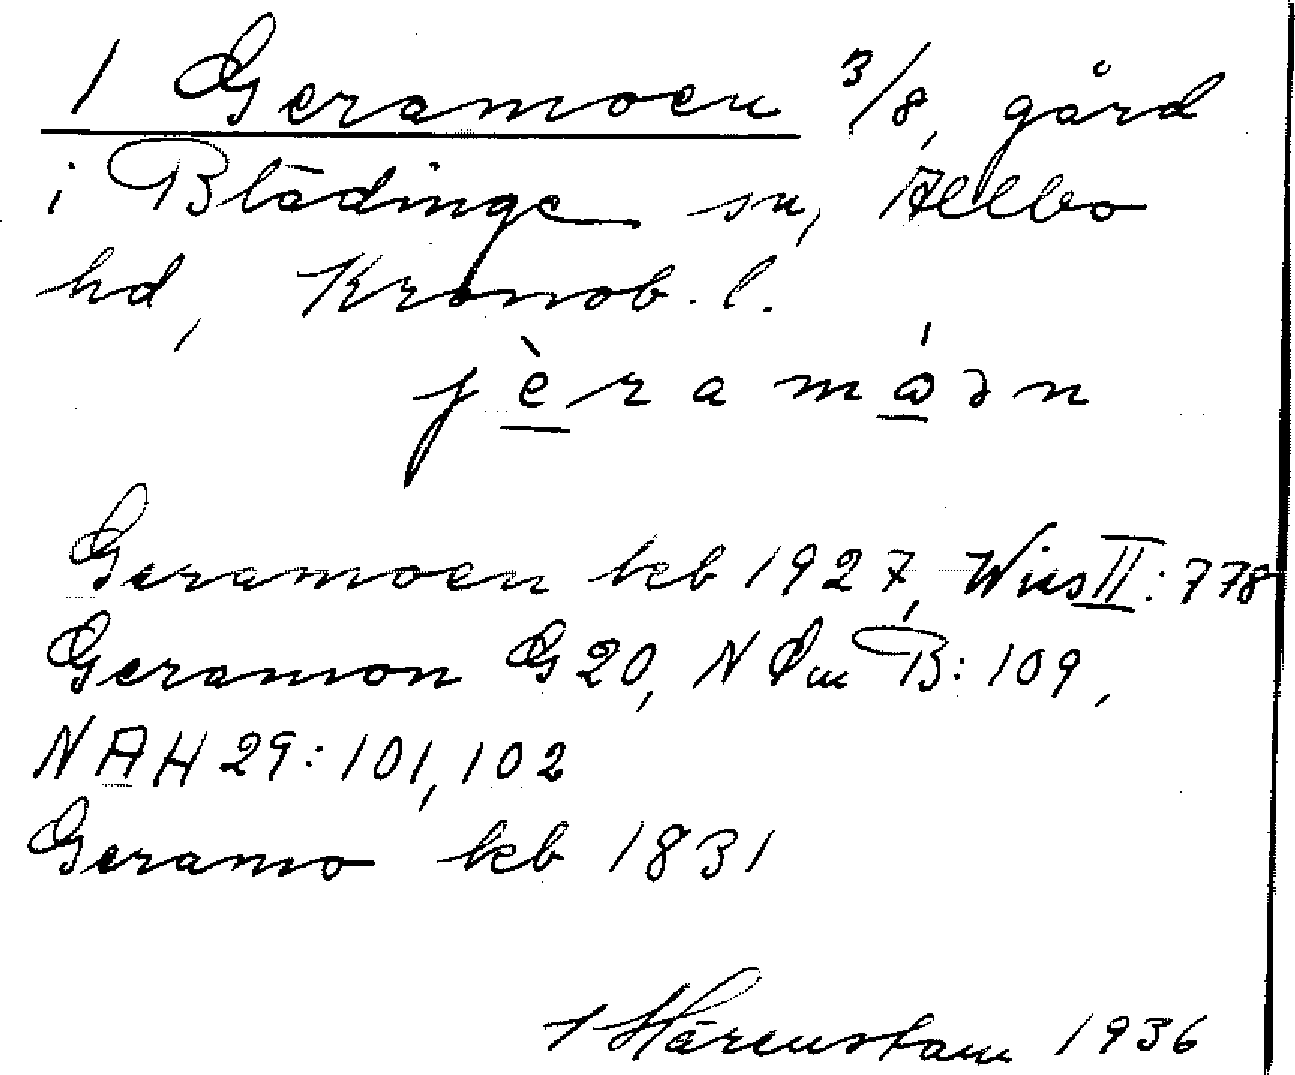 1 Geramoen 3/8, gård
i Blädinge sn, Allbo
hd, Kronob. l.
jèramóən
Geramoen keb 1927, Wies II: 778
Geramon G 20, N Öm B: 109,
NAH 29: 101, 102
Geramo keb 1831
Härenstam 1936